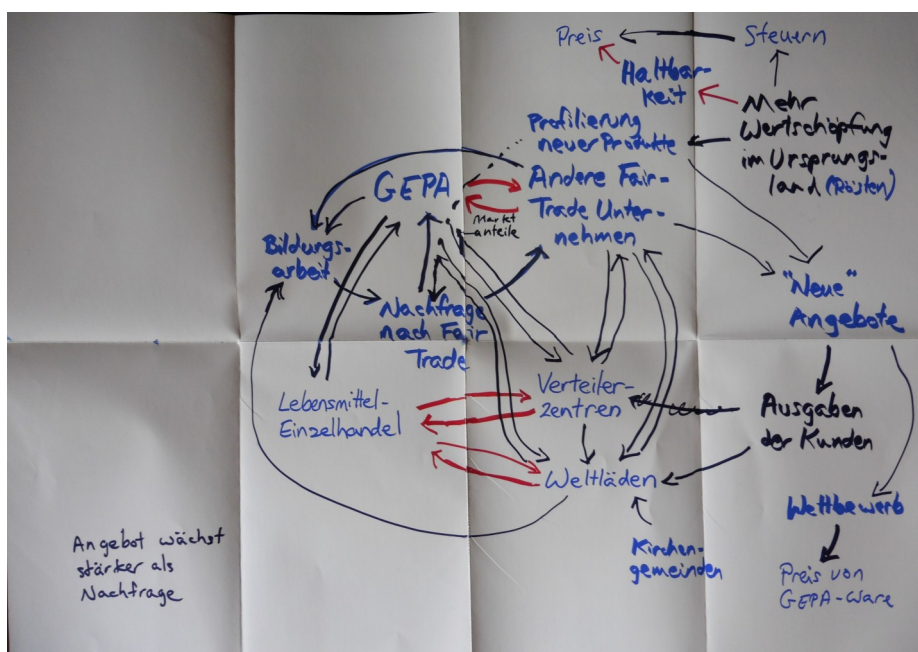 Preis
Steuern
Haltbar-
keit
Mehr
Wertschöpfung
im Ursprungs-
land (Rösten)
Profilierung
neuer Produkte
GEPA
Andere Fair-
Trade Unter-
nehmen
Markt
anteile
Bildungs-
arbeit
"Neue"
Angebote
Nachfrage
nach Fair
Trade
Lebensmittel-
Einzelhandel
Verteiler-
zentren
Ausgaben
der Kunden
Weltläden
Wettbewerb
Kirchen-
gemeinden
Preis von
GEPA-Ware
Angebot wächst
stärker als
Nachfrage